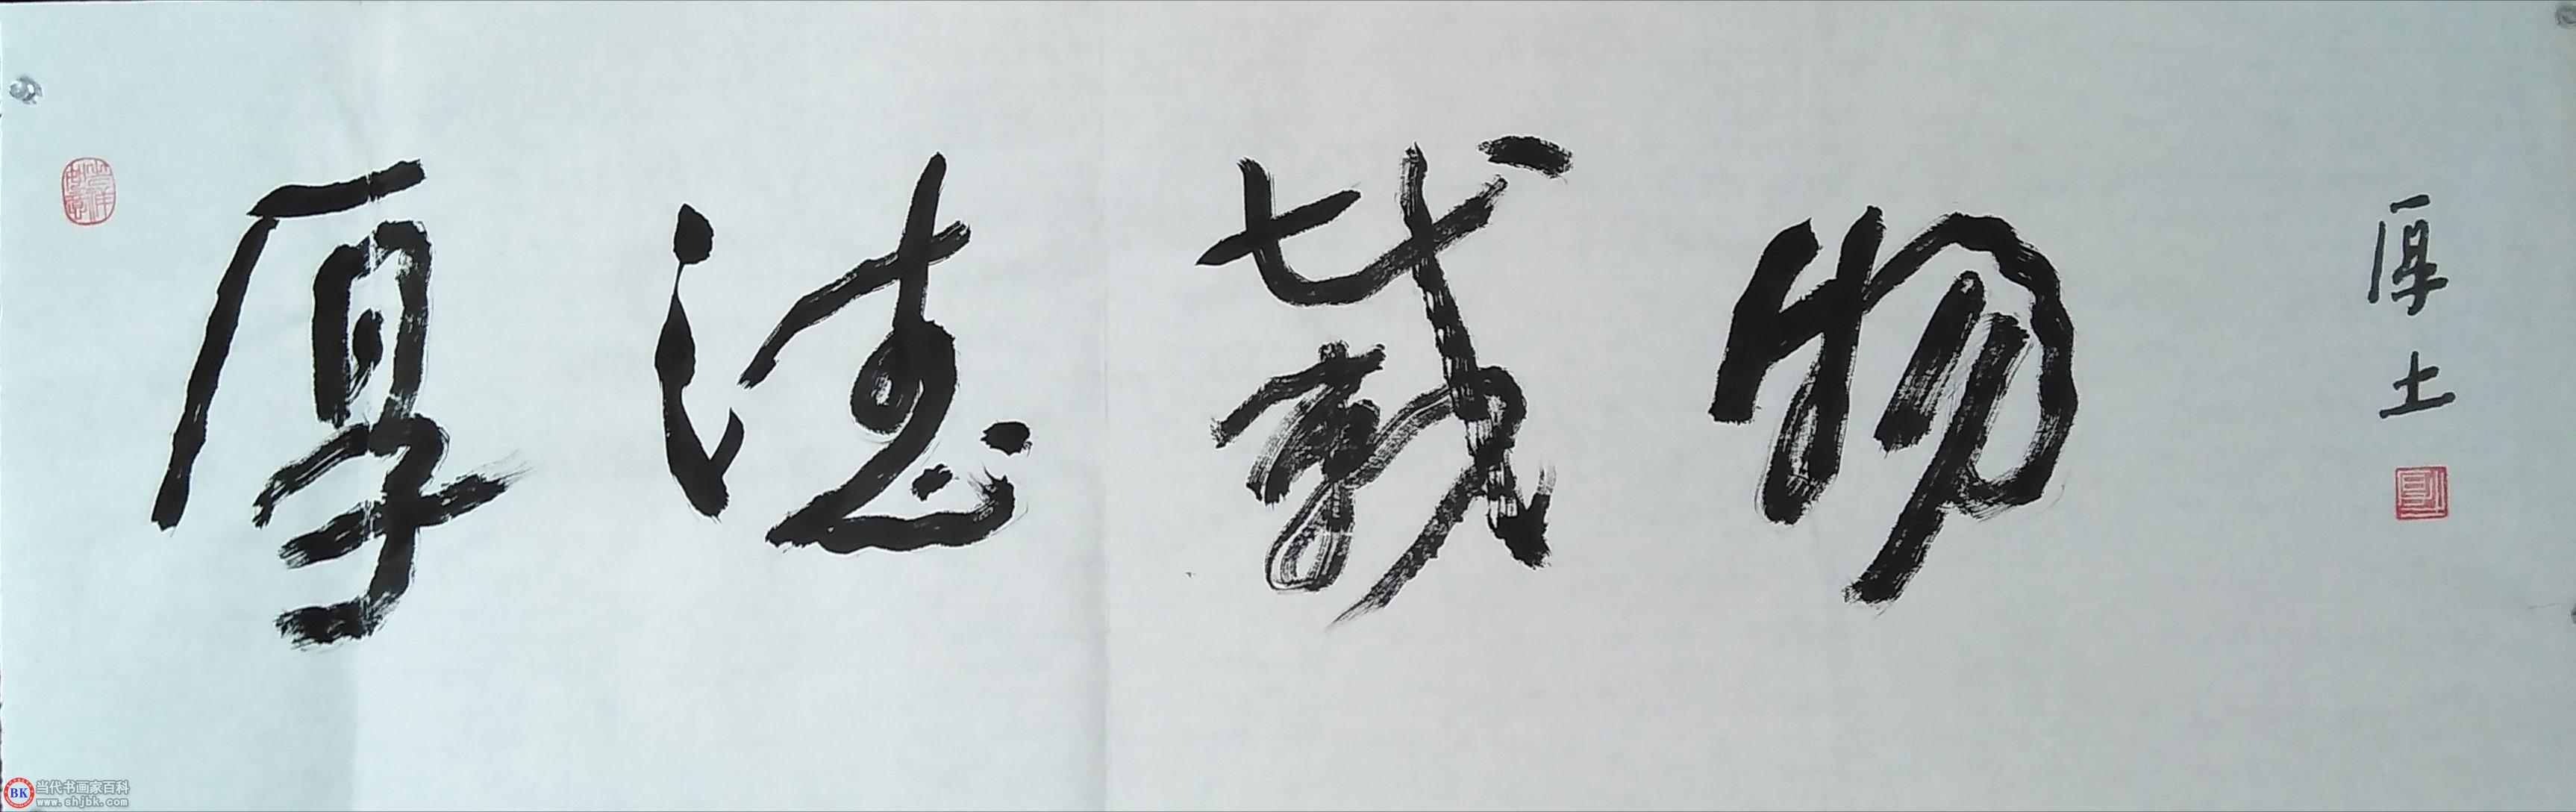 厚德载物
厚土
BK 当代书画家百科
www.shjbk.com